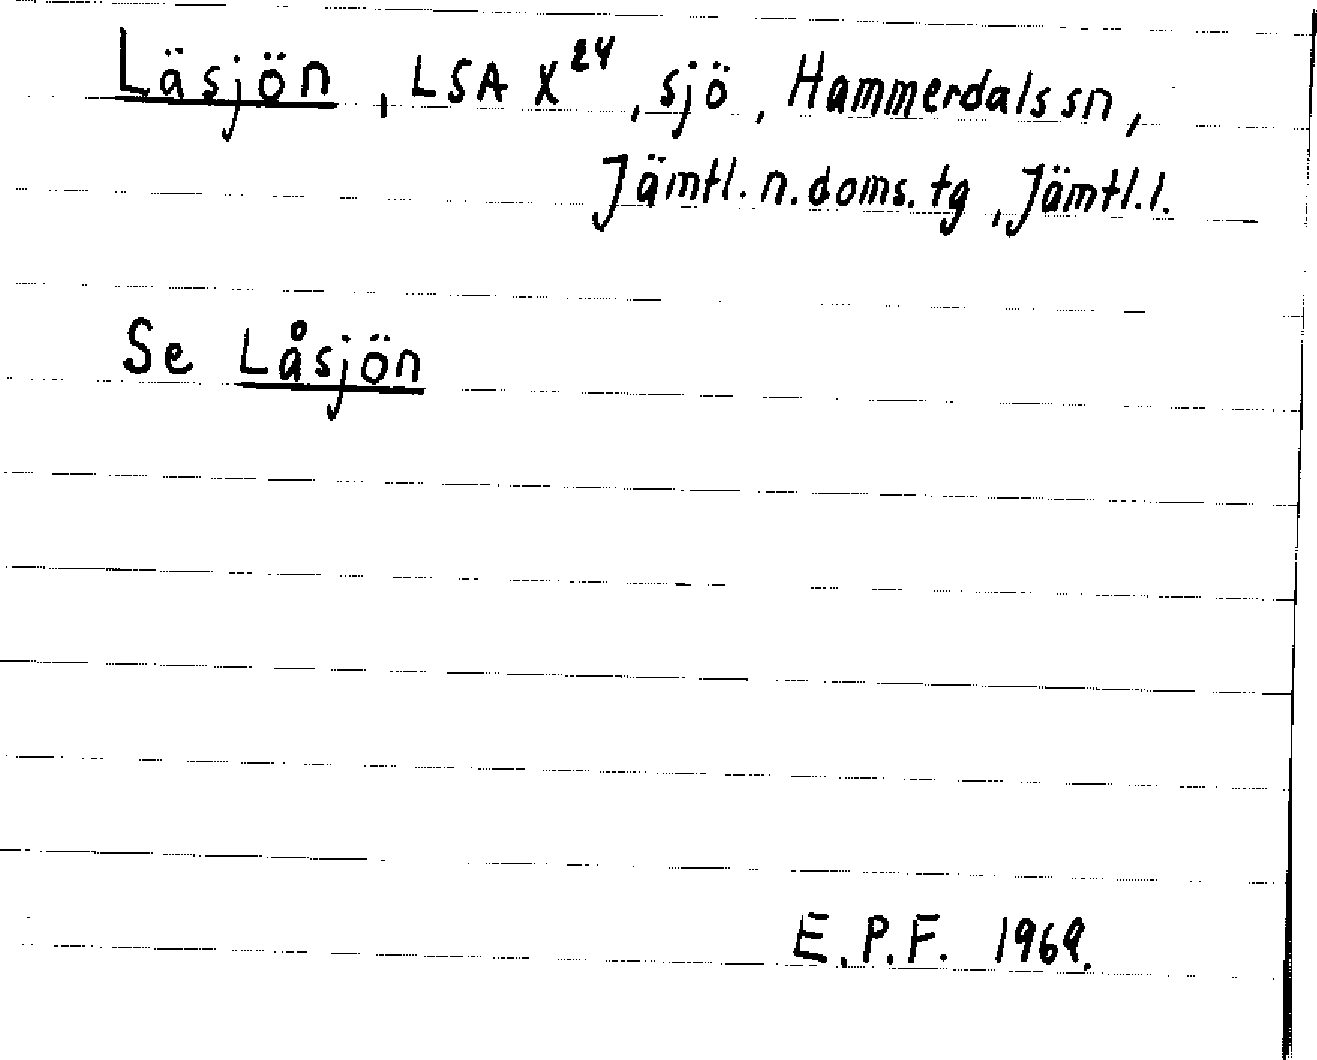 Läsjön, LSA X²⁴, sjö, Hammerdals sn,
Jämtl. n. doms. tg, Jämtl. l.
Se Låsjön
E.P.F. 1969.